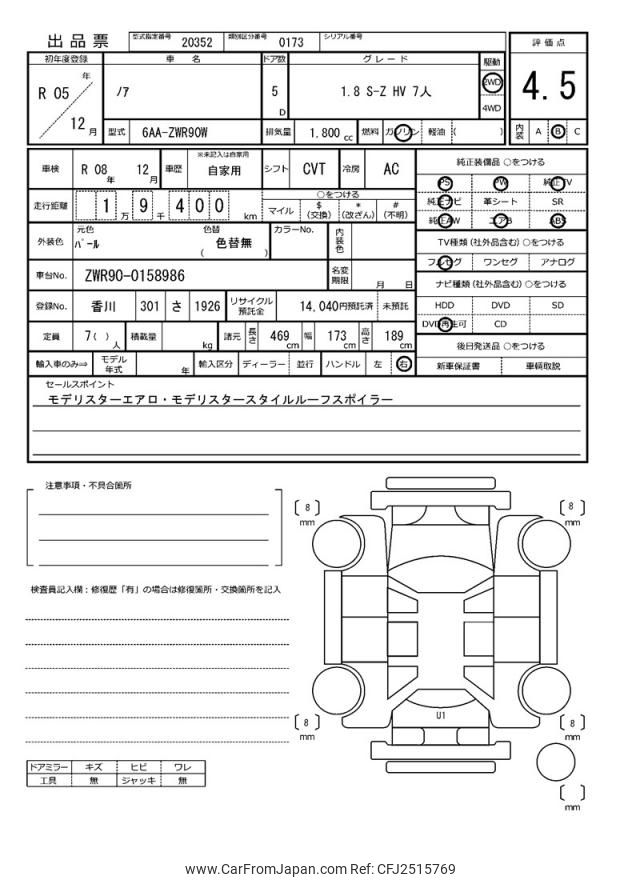 出品票 型式指定番号 20352 類別区分番号 0173 シリアル番号
評価点
初年度登録 車名 ドア数 グレード 駆動
R 05 年 12 月 ノア 5 D 1.8 S-Z HV 7人 2WD 4WD
4.5
型式 6AA-ZWR90W 排気量 1,800 cc 燃料 ガソリン 軽油 ( ) 内装 A B C
車検 R 08 年 12 月 車歴 ※未記入は自家用 自家用 シフト CVT 冷房 AC
純正装備品 ○をつける
PS PW 純正TV
走行距離 1 万 9 千 4 0 0 km ○をつける
マイル $ (交換) * (改ざん) # (不明)
純正ナビ 革シート SR
純正AW エアB ABS
外装色 元色 パール 色替 ( 色替無 ) カラーNo. 内装色
TV種類 (社外品含む) ○をつける
フルセグ ワンセグ アナログ
車台No. ZWR90-0158986 名変期限 月 日
ナビ種類 (社外品含む) ○をつける
登録No. 香川 301 さ 1926 リサイクル預託金 14,040円預託済 未預託
HDD DVD SD
DVD再生可 CD
定員 7 ( ) 人 積載量 kg 諸元 長さ 469 cm 幅 173 cm 高さ 189 cm
後日発送品 ○をつける
輸入車のみ⇒ モデル年式 年 輸入区分 ディーラー 並行 ハンドル 左 右
新車保証書 車輌取説
セールスポイント
モデリスターエアロ・モデリスタースタイルルーフスポイラー
注意事項・不具合箇所
[ 8 ] mm [ 8 ] mm
検査員記入欄：修復歴「有」の場合は修復箇所・交換箇所を記入
U1
[ 8 ] mm [ 8 ] mm
ドアミラー キズ ヒビ ワレ
工具 無 ジャッキ 無
[ ] mm
www.CarFromJapan.com Ref: CFJ2515769